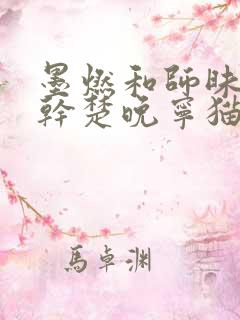 墨燃和師昧
幹楚晚寧猫
馬卓渊